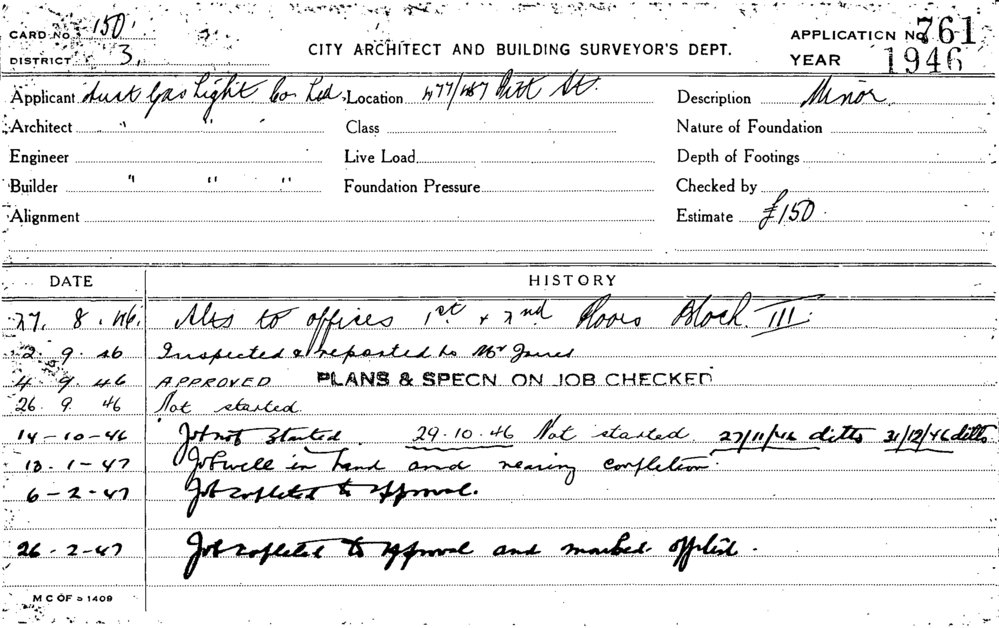 CARD NO. 150
DISTRICT 3.
CITY ARCHITECT AND BUILDING SURVEYOR'S DEPT.
APPLICATION NO. 761
YEAR 1946
Applicant Aust Gas Light Co. Ltd. Location 477/487 Pitt St. Description Minor
Architect " " " Class Nature of Foundation
Engineer Live Load Depth of Footings
Builder " " " Foundation Pressure Checked by
Alignment Estimate £150
DATE HISTORY
27. 8. 46. Alts to offices 1st + 2nd floors Block III
2. 9. 46 Inspected & reported to Mr Jones
4. 9. 46 APPROVED PLANS & SPECN ON JOB CHECKED
26. 9. 46 Not started.
14-10-46 Job not started. 29.10.46 Not started. 27/11/46 ditto 31/12/46 ditto
13. 1-47 Job well in hand and nearing completion.
6-2-47 Job completed to approval.
26-2-47 Job completed to approval and marked off
M C OF S 1409